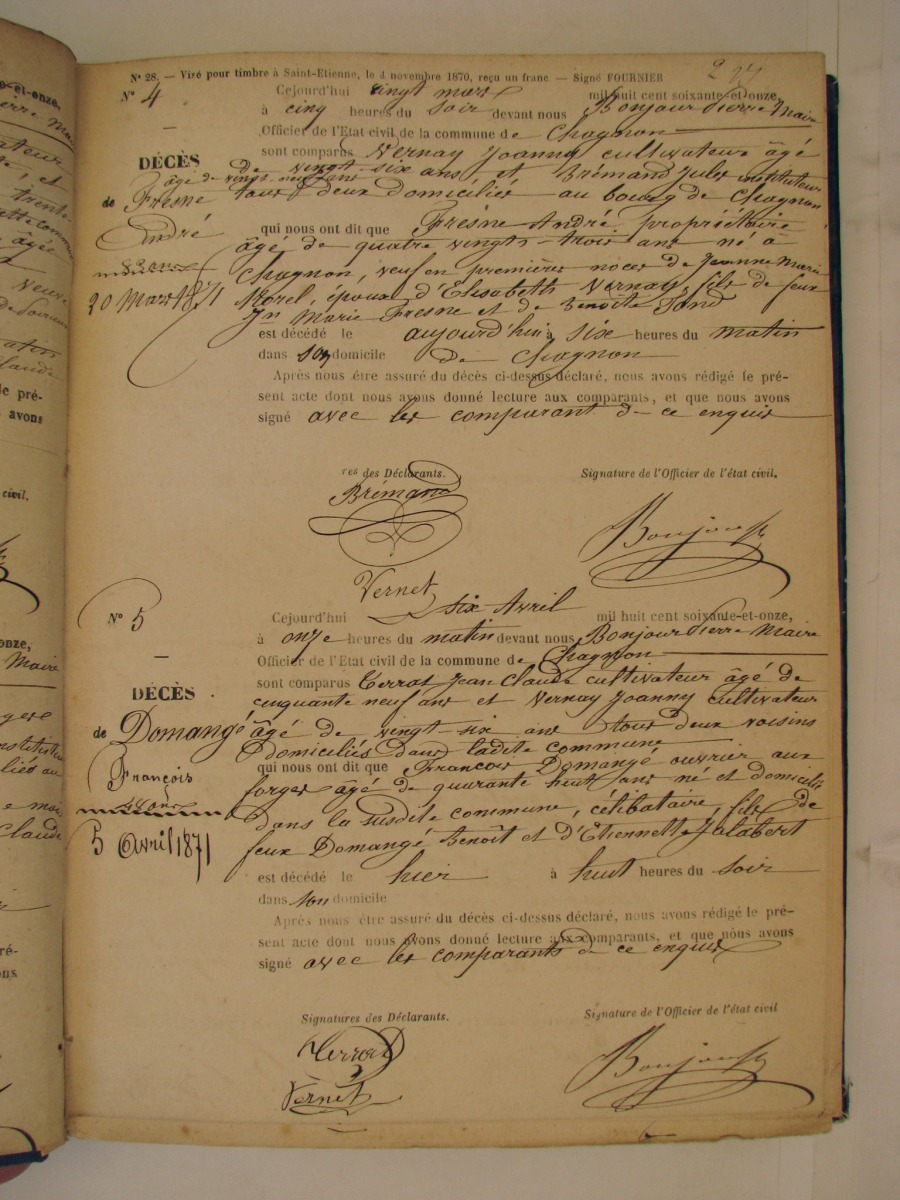 Nº 28. — Visé pour timbre à Saint-Etienne, le 4 novembre 1870, reçu un franc — Signé FOURNIER
Nº 4
Cejourd'hui vingt mars mil huit cent soixante-et-onze,
à cinq heures du soir devant nous Bonjour Pierre Maire
Officier de l'Etat civil de la commune de Chagnon
DÉCÈS
sont comparus Vernay Joanny cultivateur âgé
de vingt-six ans, et Brémand Jules instituteur
âgé de vingt
de Fresne
André
83 ans
20 Mars 1871
tous deux domiciliés au bourg de Chagnon
qui nous ont dit que Fresne André propriétaire
âgé de quatre vingt-trois ans né à
Chagnon, veuf en premières noces de Jeanne Marie
Morel, époux d'Elisabeth Vernay, fils de feux
Jn Marie Fresne et de Benoîte Fond
est décédé le aujourd'hui à six heures du matin
dans son domicile de Chagnon
Après nous être assuré du décès ci-dessus déclaré, nous avons rédigé le pré-
sent acte dont nous avons donné lecture aux comparants, et que nous avons
signé avec les comparant de ce enquis
res des Déclarants.
Signature de l'Officier de l'état civil.
Brémand
Bonjour
Vernet
Nº 5
Cejourd'hui six Avril mil huit cent soixante-et-onze,
à onze heures du matin devant nous Bonjour Pierre Maire
Officier de l'Etat civil de la commune de Chagnon
DÉCÈS
de Domangé
François
48 ans
5 Avril 1871
sont comparus Terrat Jean Claude cultivateur âgé de
cinquante neuf ans et Vernay Joanny cultivateur
âgé de vingt-six ans tous deux voisins
Domiciliés dans ladite commune
qui nous ont dit que François Domangé ouvrier aux
forges âgé de quarante huit ans né et domicilié
dans la susdite commune, célibataire, fils de
feux Domangé Benoît et d'Etiennette Jalabert
est décédé le hier à huit heures du soir
dans son domicile
Après nous être assuré du décès ci-dessus déclaré, nous avons rédigé le pré-
sent acte dont nous avons donné lecture aux comparants, et que nous avons
signé avec les comparants de ce enquis
Signatures des Déclarants.
Signature de l'Officier de l'état civil
Terrat
Bonjour
Vernet